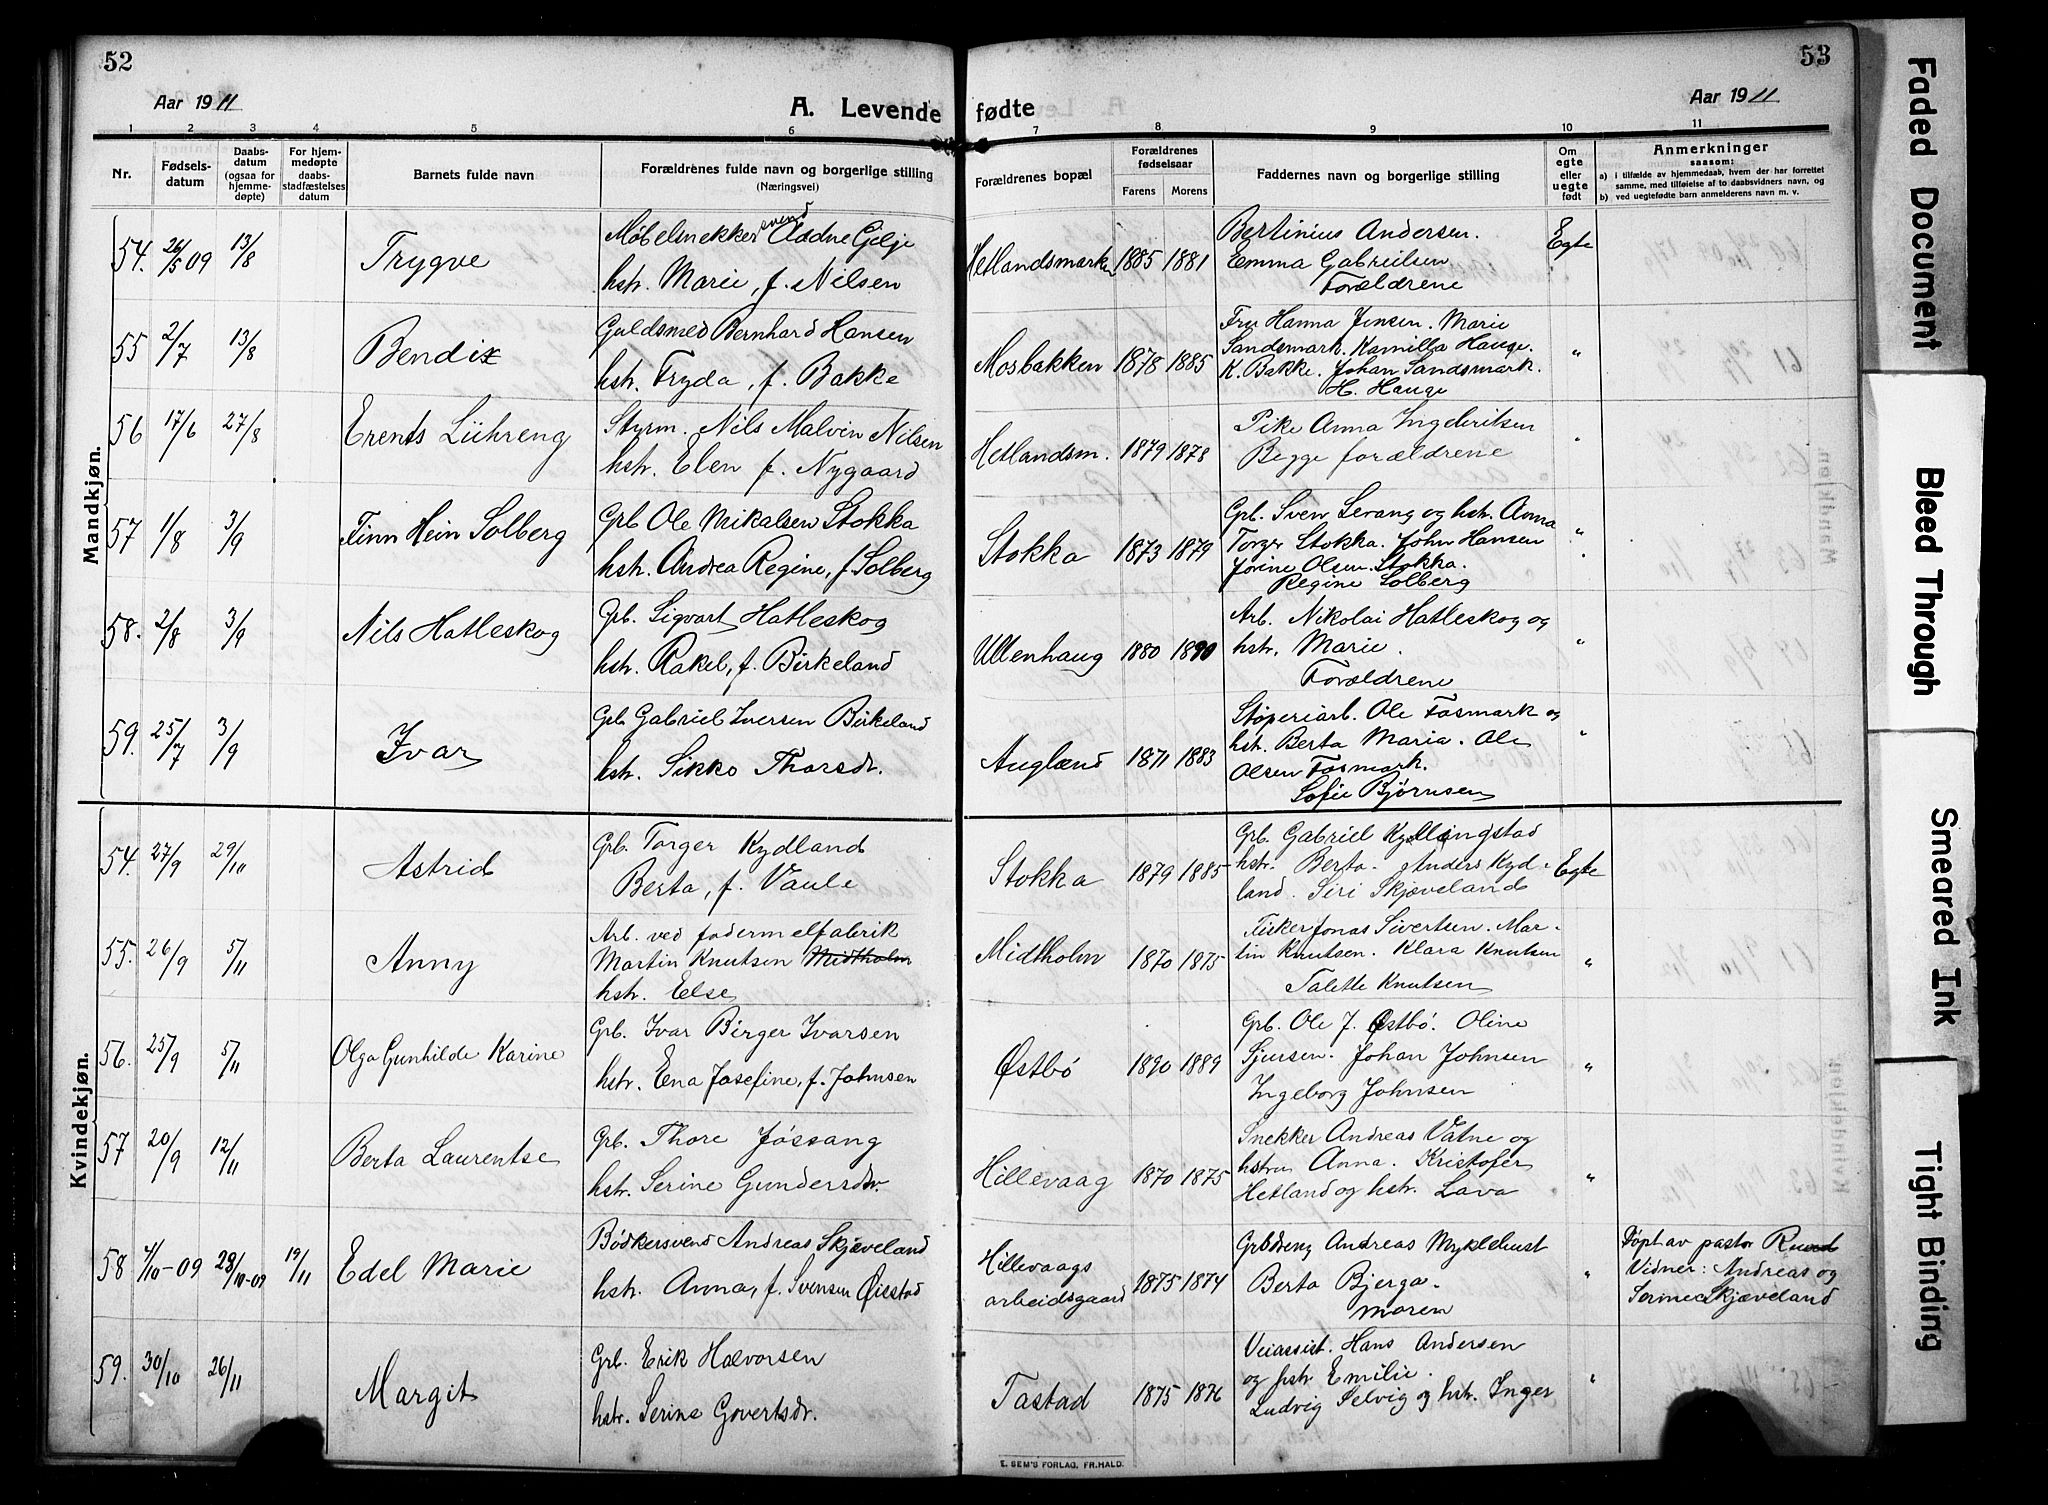 52
Aar 1911
A. Levende
1 2 3 4 5 6
Nr.
Fødsels-
datum
Daabs-
datum
(ogsaa for
hjemme-
døpte)
For hjem-
medøpte
daabs-
stadfæstelses
datum
Barnets fulde navn
Forældrenes fulde navn og borgerlige stilling
(Næringsvei)
Mandkjøn.
54. 26/5 09 13/8 Trygve
Møbelsnekkersvend Aadne Gilje
hstr. Marie, f. Nilsen
55 2/7 13/8 Bendix
Guldsmed Bernhard Hansen
hstr. Fryda, f. Bakke
56 17/6 27/8 Erents Lühreng
Styrm. Nils Malvin Nilsen
hstr. Elen f. Nygaard
57 1/8 3/9 Finn Hein Solberg
Grb Ole Mikalsen Stokka
hstr. Andrea Regine, f. Solberg
58. 2/8 3/9 Nils Hatleskog
Grb. Sigvart Hatleskog
hstr. Rakel, f. Birkeland
59. 25/7 3/9 Ivar
Grb Gabriel Iversen Birkeland
hstr. Sikko Thorsdr.
Kvindekjøn.
54. 27/9 29/10 Astrid
Grb. Torger Kydland
Berta, f. Vaule
55. 26/9 5/11 Anny
Arb. ved fodermelfabrik
Martin Knutsen Midtholm
hstr. Else
56. 25/9 5/11 Olga Gunhilde Karine
Grb. Ivar Birger Ivarsen
hstr. Ena Josefine, f. Johnsen
57 20/9 12/11 Berta Laurentse
Grb. Thore Jøssang
hstr. Serine Gundersdr.
58 4/10-09 28/10-09 19/11 Edel Marie
Bødkersvend Andreas Skjæveland
hstr. Anna, f. Svensen Øiestad
59. 30/10 26/11 Margit
Grb. Erik Halvorsen
hstr. Serine Govertsdr.
53
fødte
Aar 1911
7 8 9 10 11
Forældrenes bopæl
Forældrenes
fødselsaar
Farens Morens
Faddernes navn og borgerlige stilling
Om
egte
eller
uegte
født
Anmerkninger
saasom:
a) i tilfælde av hjemmedaab, hvem der har forrettet
samme, med tilføielse af to daabsvidners navn, og
b) ved uegtefødte barn anmelderens navn m. v.
Hetlandsmarken 1885 1881
Bertinius Andersen.
Emma Gabrielsen
Forældrene
Egte
Mosbakken 1878 1885
Fru Hanna Jensen. Marie
Sandsmark. Kamilla Hauge.
K. Bakke. Johan Sandsmark.
H. Hauge
"
Hetlandsm. 1879 1878
Pike Anna Ingebriksen
Begge forældrene
"
Stokka 1873 1879
Grb. Sven Sevang og hstr. Anna
Torger Stokka. John Hansen
Jorine Olsen Stokka.
Regine Solberg
"
Ullenhaug 1880 1890
Arb. Nikolai Hatleskog og
hstr. Marie.
Forældrene
"
Auglænd 1871 1883
Støperiarb. Ole Fosmark og
hst. Berta Maria. Ole
Olsen Fosmark.
Sofie Bjørnsen
"
Stokka 1879 1885
Grb. Gabriel Kyllingstad
hstr. Berta. Anders Kyd-
land. Siri Skjæveland
Egte
Midtholm 1870 1875
Fisker Jonas Sivertsen. Mar-
tin Knutsen. Klara Knutsen
Talette Knutsen
"
Østbø 1890 1889
Grb. Ole J. Østbø. Oline
Sjursen. Johan Johnsen
Ingeborg Johnsen
"
Hillevaag 1870 1875
Snekker Andreas Vatne og
hstru Anna. Kristofer
Hetland og hstr. Lava
"
Hillevaags
arbeidsgaard 1875 1874
Grbdreng Andreas Myklebust
Berta Bjerga.
Moren
"
Døpt av pastor Ruud
Vidner: Andreas og
Serine Skjæveland
Tastad 1875 1876
Veiassist. Hans Andersen
og hstr Emilie.
Ludvig Selvig og hstr. Inger
"
E. SEM'S FORLAG, FR.HALD.
Faded Document
Bleed Through
Smeared Ink
Tight Binding